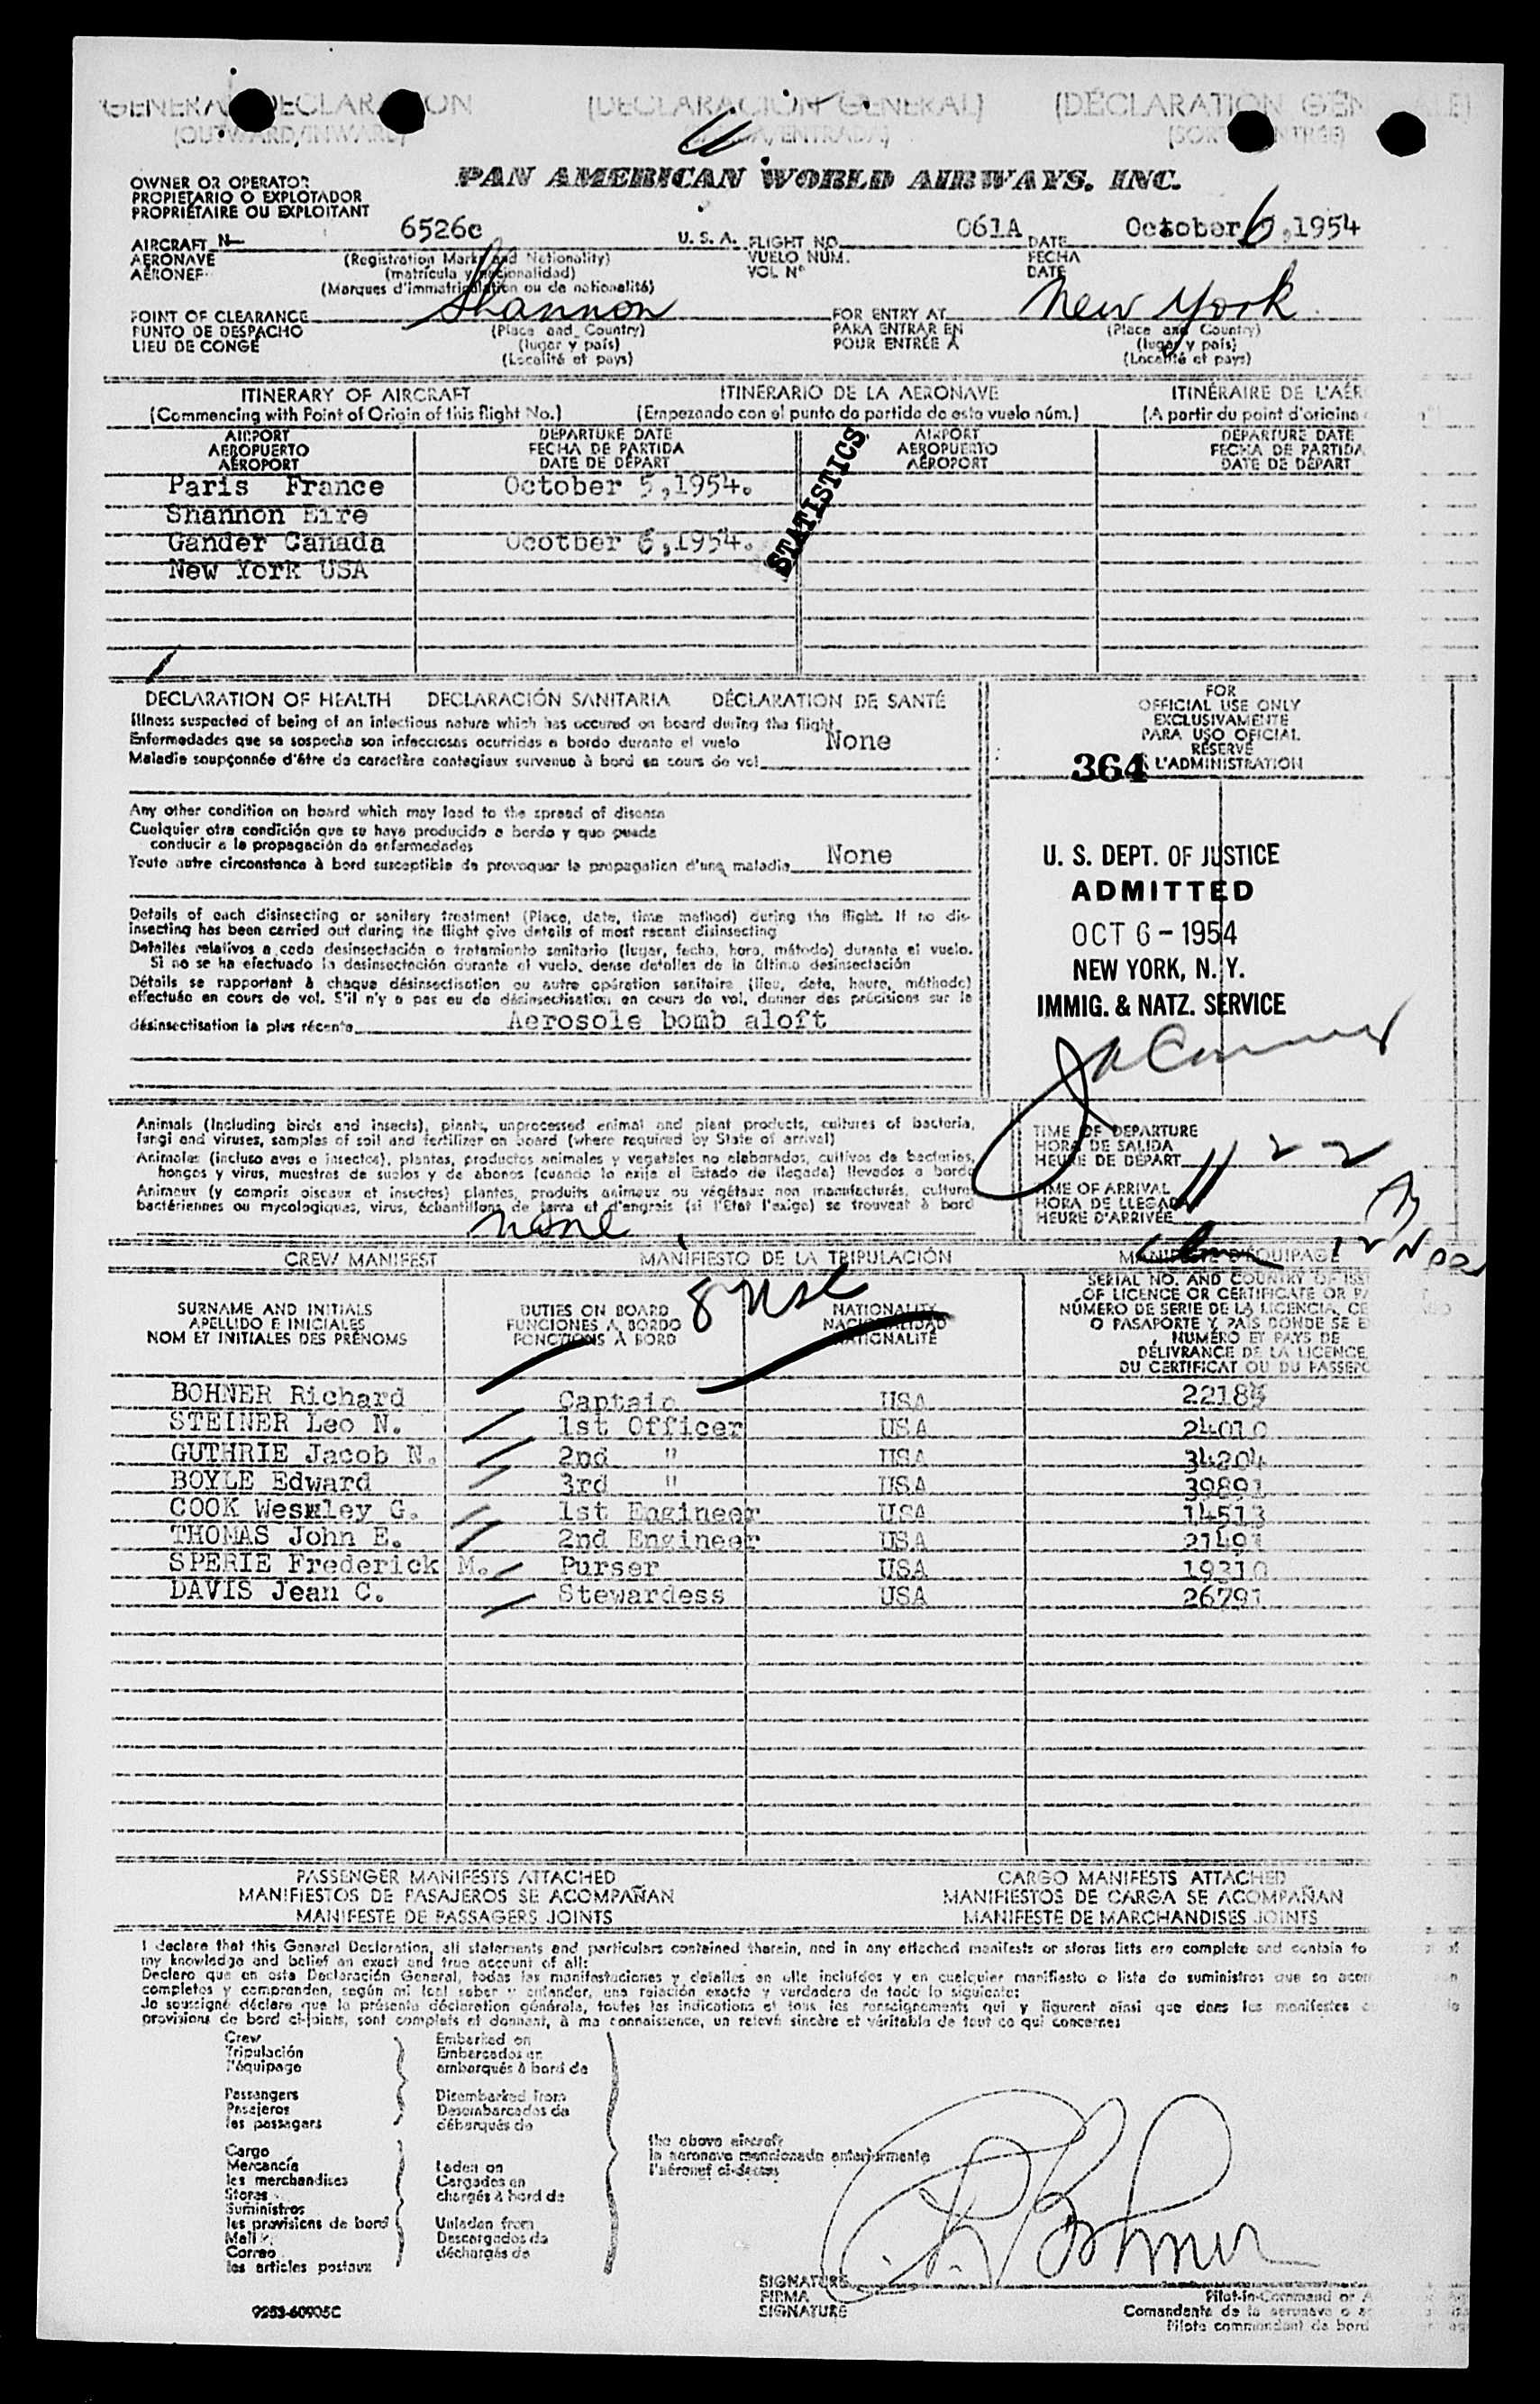 GENERAL DECLARATION (DECLARACIÓN GENERAL) (DÉCLARATION GÉN
(OUTWARD/INWARD) /ENTRADA)
PAN AMERICAN WORLD AIRWAYS, INC.
OWNER OR OPERATOR
PROPIETARIO O EXPLOTADOR
PROPRIÉTAIRE OU EXPLOITANT
AIRCRAFT N- 6526c U. S. A. FLIGHT NO. 061A DATE October 6, 1954
AERONAVE (Registration Marks and Nationality) VUELO NUM. FECHA
AÉRONEF (matrícula y nacionalidad) VOL Nº DATE
(Marques d'immatriculation ou de nationalité)
POINT OF CLEARANCE Shannon FOR ENTRY AT New York
PUNTO DE DESPACHO (Place and Country) PARA ENTRAR EN (Place and Country)
LIEU DE CONGÉ (lugar y país) POUR ENTRÉE À (lugar y país)
(Localité et pays) (Localité et pays)
ITINERARY OF AIRCRAFT ITINERARIO DE LA AERONAVE ITINÉRAIRE DE L'AÉR
(Commencing with Point of Origin of this flight No.) (Empezando con el punto de partida de este vuelo núm.) (A partir du point d'origine
AIRPORT DEPARTURE DATE AIRPORT DEPARTURE DATE
AEROPUERTO FECHA DE PARTIDA AEROPUERTO FECHA DE PARTIDA
AÉROPORT DATE DE DÉPART AÉROPORT DATE DE DÉPART
STATISTICS
Paris France October 5,1954.
Shannon Eire
Gander Canada Ocotber 6,1954.
New York USA
DECLARATION OF HEALTH DECLARACIÓN SANITARIA DÉCLARATION DE SANTÉ
Illness suspected of being of an infectious nature which has occured on board during the flight
Enfermedades que se sospecha son infecciosas ocurridas a bordo durante el vuelo None
Maladie soupçonnée d'être de caractère contagieux survenue à bord en cours de vol
Any other condition on board which may lead to the spread of disease
Cualquier otra condición que se haya producido a bordo y que pueda
conducir a la propagación de enfermedades
Toute autre circonstance à bord susceptible de provoquer la propagation d'une maladie None
Details of each disinsecting or sanitary treatment (Place, date, time method) during the flight. If no dis-
insecting has been carried out during the flight give details of most recent disinsecting
Detalles relativos a cada desinsectación o tratamiento sanitario (lugar, fecha, hora, método) durante el vuelo.
Si no se ha efectuado la desinsectación durante el vuelo, dense detalles de la última desinsectación
Détails se rapportant à chaque désinsectisation ou autre opération sanitaire (lieu, date, heure, méthode)
effectuée en cours de vol. S'il n'y a pas eu de désinsectisation en cours de vol, donner des précisions sur la
désinsectisation la plus récente Aerosole bomb aloft
FOR
OFFICIAL USE ONLY
EXCLUSIVAMENTE
PARA USO OFICIAL
RÉSERVÉ
364 À L'ADMINISTRATION
U. S. DEPT. OF JUSTICE
ADMITTED
OCT 6 - 1954
NEW YORK, N. Y.
IMMIG. & NATZ. SERVICE
Animals (Including birds and insects), plants, unprocessed animal and plant products, cultures of bacteria,
fungi and viruses, samples of soil and fertilizer on board (where required by State of arrival)
Animales (incluso aves e insectos), plantas, productos animales y vegetales no elaborados, cultivos de bacterias,
hongos y virus, muestras de suelos y de abonos (cuando lo exija el Estado de llegada) llevados a bordo
Animaux (y compris oiseaux et insectes) plantes, produits animaux ou végétaux non manufacturés, cultures
bactériennes ou mycologiques, virus, échantillons de terre et d'engrais (si l'Etat l'exige) se trouvant à bord
none
TIME OF DEPARTURE
HORA DE SALIDA
HEURE DE DÉPART 1122
TIME OF ARRIVAL
HORA DE LLEGADA
HEURE D'ARRIVÉE
CREW MANIFEST MANIFIESTO DE LA TRIPULACIÓN MANIFESTE D'ÉQUIPAGE
8 usc
SURNAME AND INITIALS DUTIES ON BOARD NATIONALITY SERIAL NO. AND COUNTRY OF ISS
APELLIDO E INICIALES FUNCIONES A BORDO NACIONALIDAD OF LICENCE OR CERTIFICATE OR PA
NOM ET INITIALES DES PRÉNOMS FONCTIONS À BORD NATIONALITÉ NÚMERO DE SERIE DE LA LICENCIA, CE
O PASAPORTE Y PAÍS DONDE SE E
NUMÉRO ET PAYS DE
DÉLIVRANCE DE LA LICENCE,
DU CERTIFICAT OU DU PASSEPO
BOHNER Richard Captain USA
STEINER Leo N. 1st Officer USA 24010
GUTHRIE Jacob N. 2nd " USA 34204
BOYLE Edward 3rd " USA 39891
COOK Wesley G. 1st Engineer USA 14513
THOMAS John E. 2nd Engineer USA 21491
SPERIE Frederick M. Purser USA 19310
DAVIS Jean C. Stewardess USA 26791
PASSENGER MANIFESTS ATTACHED CARGO MANIFESTS ATTACHED
MANIFIESTOS DE PASAJEROS SE ACOMPAÑAN MANIFIESTOS DE CARGA SE ACOMPAÑAN
MANIFESTE DE PASSAGERS JOINTS MANIFESTE DE MARCHANDISES JOINTS
I declare that this General Declaration, all statements and particulars contained therein, and in any attached manifests or stores lists are complete and contain to
my knowledge and belief an exact and true account of all:
Declaro que en esta Declaración General, todas las manifestaciones y detalles en ella incluídos y en cualquier manifiesto o lista de suministros que se acom
completos y comprenden, según mi leal saber y entender, una relación exacta y verdadera de todo lo siguiente:
Je soussigné déclare que la présente déclaration générale, toutes les indications et tous les renseignements qui y figurent ainsi que dans les manifestes
provisions de bord ci-joints, sont complets et donnent, à ma connaissance, un relevé sincère et véritable de tout ce qui concerne:
Crew Embarked on
Tripulación Embarcados en
l'équipage embarqués à bord de
Passengers Disembarked from
Pasajeros Desembarcados de
les passagers débarqués de
the above aircraft
la aeronave mencionada anteriormente
l'aéronef ci-dessus
Cargo
Mercancía Laden on
les merchandises Cargados en
Stores chargés à bord de
Suministros
les provisions de bord Unladen from
Mail Descargados de
Correo déchargés de
les articles postaux
R. Bohner
SIGNATURE
FIRMA Pilot-in-Command or A
SIGNATURE Comandante de la aeronave o a
Pilote commandant de bord
9253-60905C